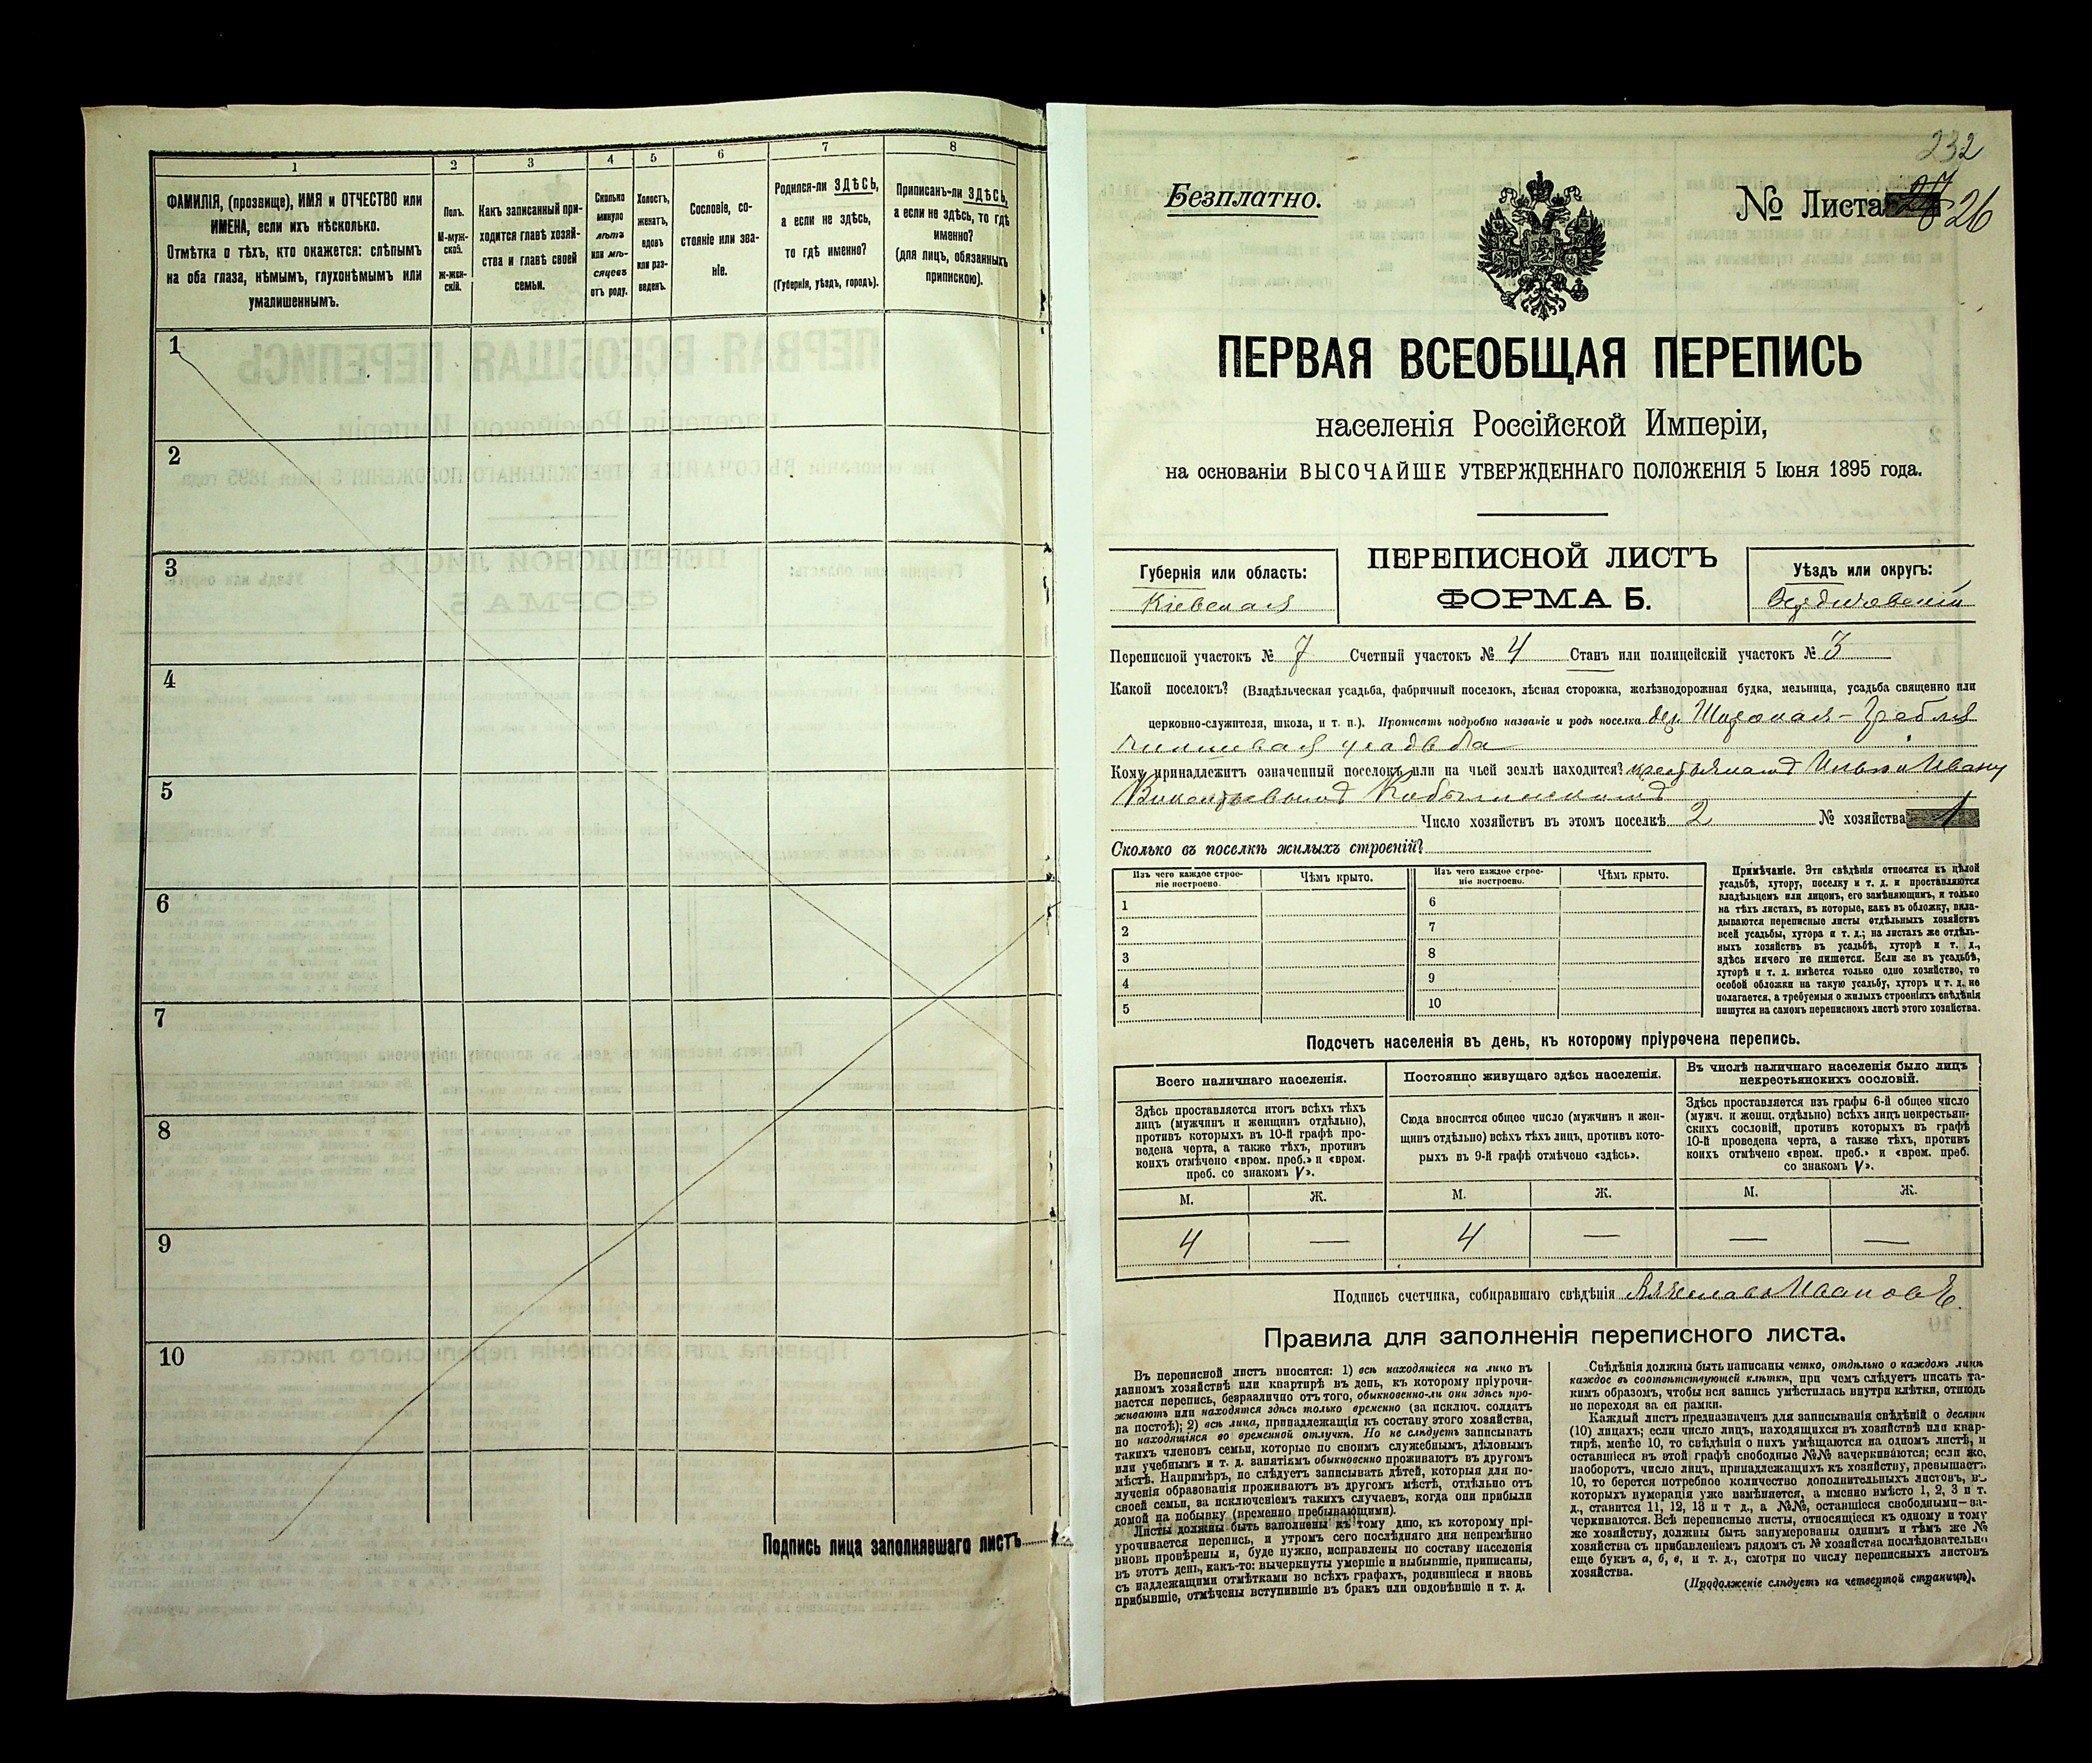 1 2 3 4 5 6 7 8
ФАМИЛІЯ, (прозвище), ИМЯ и ОТЧЕСТВО или
ИМЕНА, если ихъ нѣсколько.
Отмѣтка о тѣхъ, кто окажется: слѣпымъ
на оба глаза, нѣмымъ, глухонѣмымъ или
умалишеннымъ.
Полъ.
М-муж-
ской.
ж-жен-
скій.
Какъ записанный при-
ходится главѣ хозяй-
ства и главѣ своей
семьи.
Сколько
минуло
лѣтъ
или мѣ-
сяцевъ
отъ роду.
Холостъ,
женатъ,
вдовъ
или раз-
веденъ.
Сословіе, со-
стояніе или зва-
ніе.
Родился-ли ЗДѢСЬ,
а если не здѣсь,
то гдѣ именно?
(Губернія, уѣздъ, городъ).
Приписанъ-ли ЗДѢСЬ,
а если не здѣсь, то гдѣ
именно?
(для лицъ, обязанныхъ
припискою).
1
2
3
4
5
6
7
8
9
10
Подпись лица заполнявшаго листъ
232
Безплатно.
№ Листа 26
ПЕРВАЯ ВСЕОБЩАЯ ПЕРЕПИСЬ
населенія Россійской Имперіи,
на основаніи ВЫСОЧАЙШЕ УТВЕРЖДЕННАГО ПОЛОЖЕНІЯ 5 Іюня 1895 года.
Губернія или область:
Кіевская
ПЕРЕПИСНОЙ ЛИСТЪ
ФОРМА Б.
Уѣздъ или округъ:
Бердичевскій
Переписной участокъ № 7 Счетный участокъ № 4 Станъ или полицейскій участокъ № 3
Какой поселокъ? (Владѣльческая усадьба, фабричный поселокъ, лѣсная сторожка, желѣзнодорожная будка, мельница, усадьба священно или
церковно-служителя, школа, и т. п.). Прописать подробно названіе и родъ поселка дер. Широкая-Гребля
чиншевая усадьба
Кому принадлежитъ означенный поселокъ или на чьей землѣ находится? крестьянамъ Ивану
Число хозяйствъ въ этомъ поселкѣ 2 № хозяйства 1
Сколько въ поселкѣ жилыхъ строеній?
Изъ чего каждое строе-
ніе построено. Чѣмъ крыто. Изъ чего каждое строе-
ніе построено. Чѣмъ крыто.
1 6
2 7
3 8
4 9
5 10
Примѣчаніе. Эти свѣдѣнія относятся къ цѣлой
усадьбѣ, хутору, поселку и т. д. и проставляются
владѣльцемъ или лицомъ, его замѣняющимъ, и только
на тѣхъ листахъ, въ которые, какъ въ обложку, вкла-
дываются переписные листы отдѣльныхъ хозяйствъ
всей усадьбы, хутора и т. д.; на листахъ же отдѣль-
ныхъ хозяйствъ въ усадьбѣ, хуторѣ и т. д.,
здѣсь ничего не пишется. Если же въ усадьбѣ,
хуторѣ и т. д. имѣется только одно хозяйство, то
особой обложки на такую усадьбу, хуторъ и т. д. не
полагается, а требуемыя о жилыхъ строеніяхъ свѣдѣнія
пишутся на самомъ переписномъ листѣ этого хозяйства.
Подсчетъ населенія въ день, къ которому пріурочена перепись.
Всего наличнаго населенія.
Здѣсь проставляется итогъ всѣхъ тѣхъ
лицъ (мужчинъ и женщинъ отдѣльно),
противъ которыхъ въ 10-й графѣ про-
ведена черта, а также тѣхъ, противъ
коихъ отмѣчено «врем. преб.» и «врем.
преб. со знакомъ V».
Постоянно живущаго здѣсь населенія.
Сюда вносится общее число (мужчинъ и жен-
щинъ отдѣльно) всѣхъ тѣхъ лицъ, противъ кото-
рыхъ въ 9-й графѣ отмѣчено «здѣсь».
Въ числѣ наличнаго населенія было лицъ
некрестьянскихъ сословій.
Здѣсь проставляется изъ графы 6-й общее число
(мужч. и женщ. отдѣльно) всѣхъ лицъ некрестьян-
скихъ сословій, противъ которыхъ въ графѣ
10-й проведена черта, а также тѣхъ, противъ
коихъ отмѣчено «врем. преб.» и «врем. преб.
со знакомъ V».
М. Ж. М. Ж. М. Ж.
4 — 4 — — —
Подпись счетчика, собиравшаго свѣдѣнія Вячеславъ Ивановъ
Правила для заполненія переписного листа.
Въ переписной листъ вносятся: 1) всѣ находящіеся на лицо въ
данномъ хозяйствѣ или квартирѣ въ день, къ которому пріурочи-
вается перепись, безразлично отъ того, обыкновенно-ли они здѣсь про-
живаютъ или находятся здѣсь только временно (за исключ. солдатъ
на постоѣ); 2) всѣ лица, принадлежащія къ составу этого хозяйства,
но находящіяся во временной отлучкѣ. Но не слѣдуетъ записывать
такихъ членовъ семьи, которые по своимъ служебнымъ, дѣловымъ
или учебнымъ и т. д. занятіямъ обыкновенно проживаютъ въ другомъ
мѣстѣ. Напримѣръ, не слѣдуетъ записывать дѣтей, которыя для по-
лученія образованія проживаютъ въ другомъ мѣстѣ, отдѣльно отъ
своей семьи, за исключеніемъ такихъ случаевъ, когда они прибыли
домой на побывку (временно пребывающими).
Листы должны быть заполнены къ тому дню, къ которому прі-
урочивается перепись, и утромъ сего послѣдняго дня непремѣнно
вновь провѣрены и, буде нужно, исправлены по составу населенія
въ этотъ день, какъ-то: вычеркнуты умершіе и выбывшіе, приписаны,
съ надлежащими отмѣтками во всѣхъ графахъ, родившіеся и вновь
прибывшіе, отмѣчены вступившіе въ бракъ или овдовѣвшіе и т. д.
Свѣдѣнія должны быть написаны четко, отдѣльно о каждомъ лицѣ
каждое въ соотвѣтствующей клѣткѣ, при чемъ слѣдуетъ писать та-
кимъ образомъ, чтобы вся запись умѣстилась внутри клѣтки, отнюдь
не переходя за ея рамки.
Каждый листъ предназначенъ для записыванія свѣдѣній о десяти
(10) лицахъ; если число лицъ, находящихся въ хозяйствѣ или квар-
тирѣ, менѣе 10, то свѣдѣнія о нихъ умѣщаются на одномъ листѣ, и
оставшіеся въ этой графѣ свободные №№ зачеркиваются; если же,
наоборотъ, число лицъ, принадлежащихъ къ хозяйству, превышаетъ
10, то берется потребное количество дополнительныхъ листовъ, въ
которыхъ нумерація уже измѣняется, а именно вмѣсто 1, 2, 3 и т.
д., ставится 11, 12, 13 и т д., а №№, оставшіеся свободными—за-
черкиваются. Всѣ переписные листы, относящіеся къ одному и тому
же хозяйству, должны быть занумерованы однимъ и тѣмъ же №
хозяйства съ прибавленіемъ рядомъ съ № хозяйства послѣдовательно
еще буквъ а, б, в, и т. д., смотря по числу переписныхъ листовъ
хозяйства.
(Продолженіе слѣдуетъ на четвертой страницѣ).